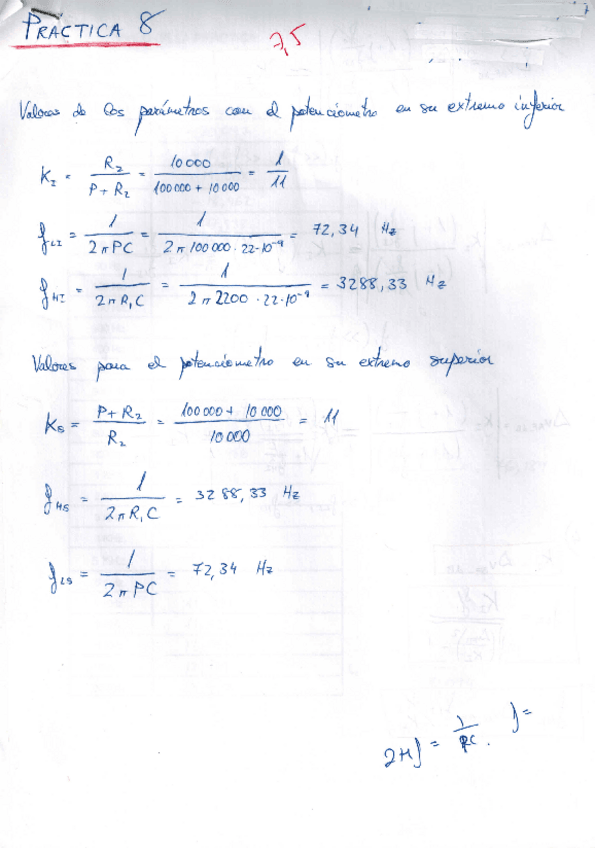 PRACTICA 8
7,5
Valores de los parámetros con el potenciómetro en su extremo inferior
K_I = R₂ / (P + R₂) = 10000 / (100000 + 10000) = 1/11
f_LI = 1 / (2πPC) = 1 / (2π100000 · 22·10⁻⁹) = 72,34 Hz
f_HI = 1 / (2πR₁C) = 1 / (2π2200 · 22·10⁻⁹) = 3288,33 Hz
Valores para el potenciómetro en su extremo superior
K_S = (P + R₂) / R₂ = (100000 + 10000) / 10000 = 11
f_HS = 1 / (2πR₁C) = 3288,33 Hz
f_LS = 1 / (2πPC) = 72,34 Hz
2πf = 1 / RC . f =